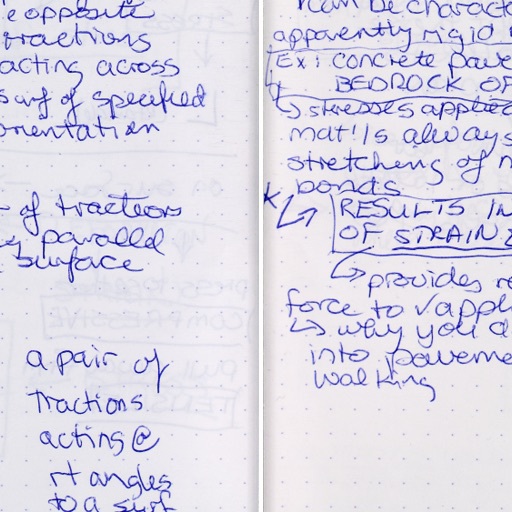 e opposite
tractions
acting across
surf of specified
orientation
- of tractions
parallel
surface
a pair of
tractions
acting @
rt angles
to a surf
can be charact
apparently rigid
Ex: concrete pave
BEDROCK OF
↳ stresses applied
mat'ls always
stretching of
bonds
RESULTS IN
OF STRAIN
↳ provides re
force to √ appl
↳ why you d
into paveme
walking